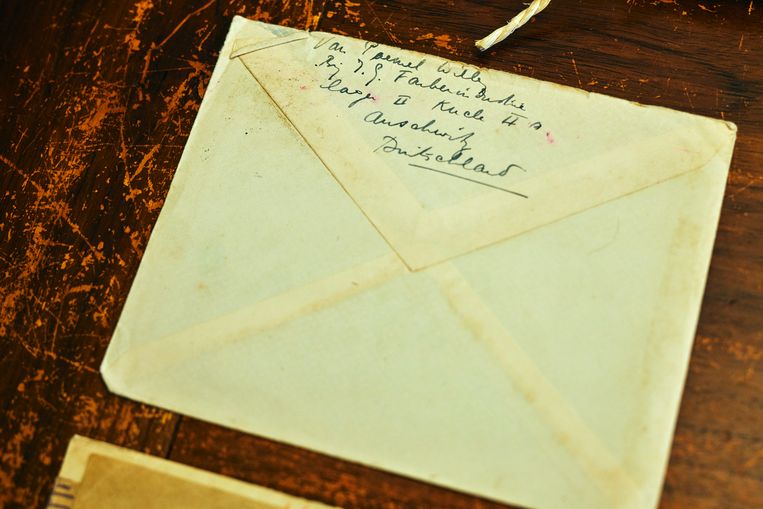 Van Poemel Willy
Bij I. G. Farbenindustrie
Lager II Küche II a.
Auschwitz
Duitschland